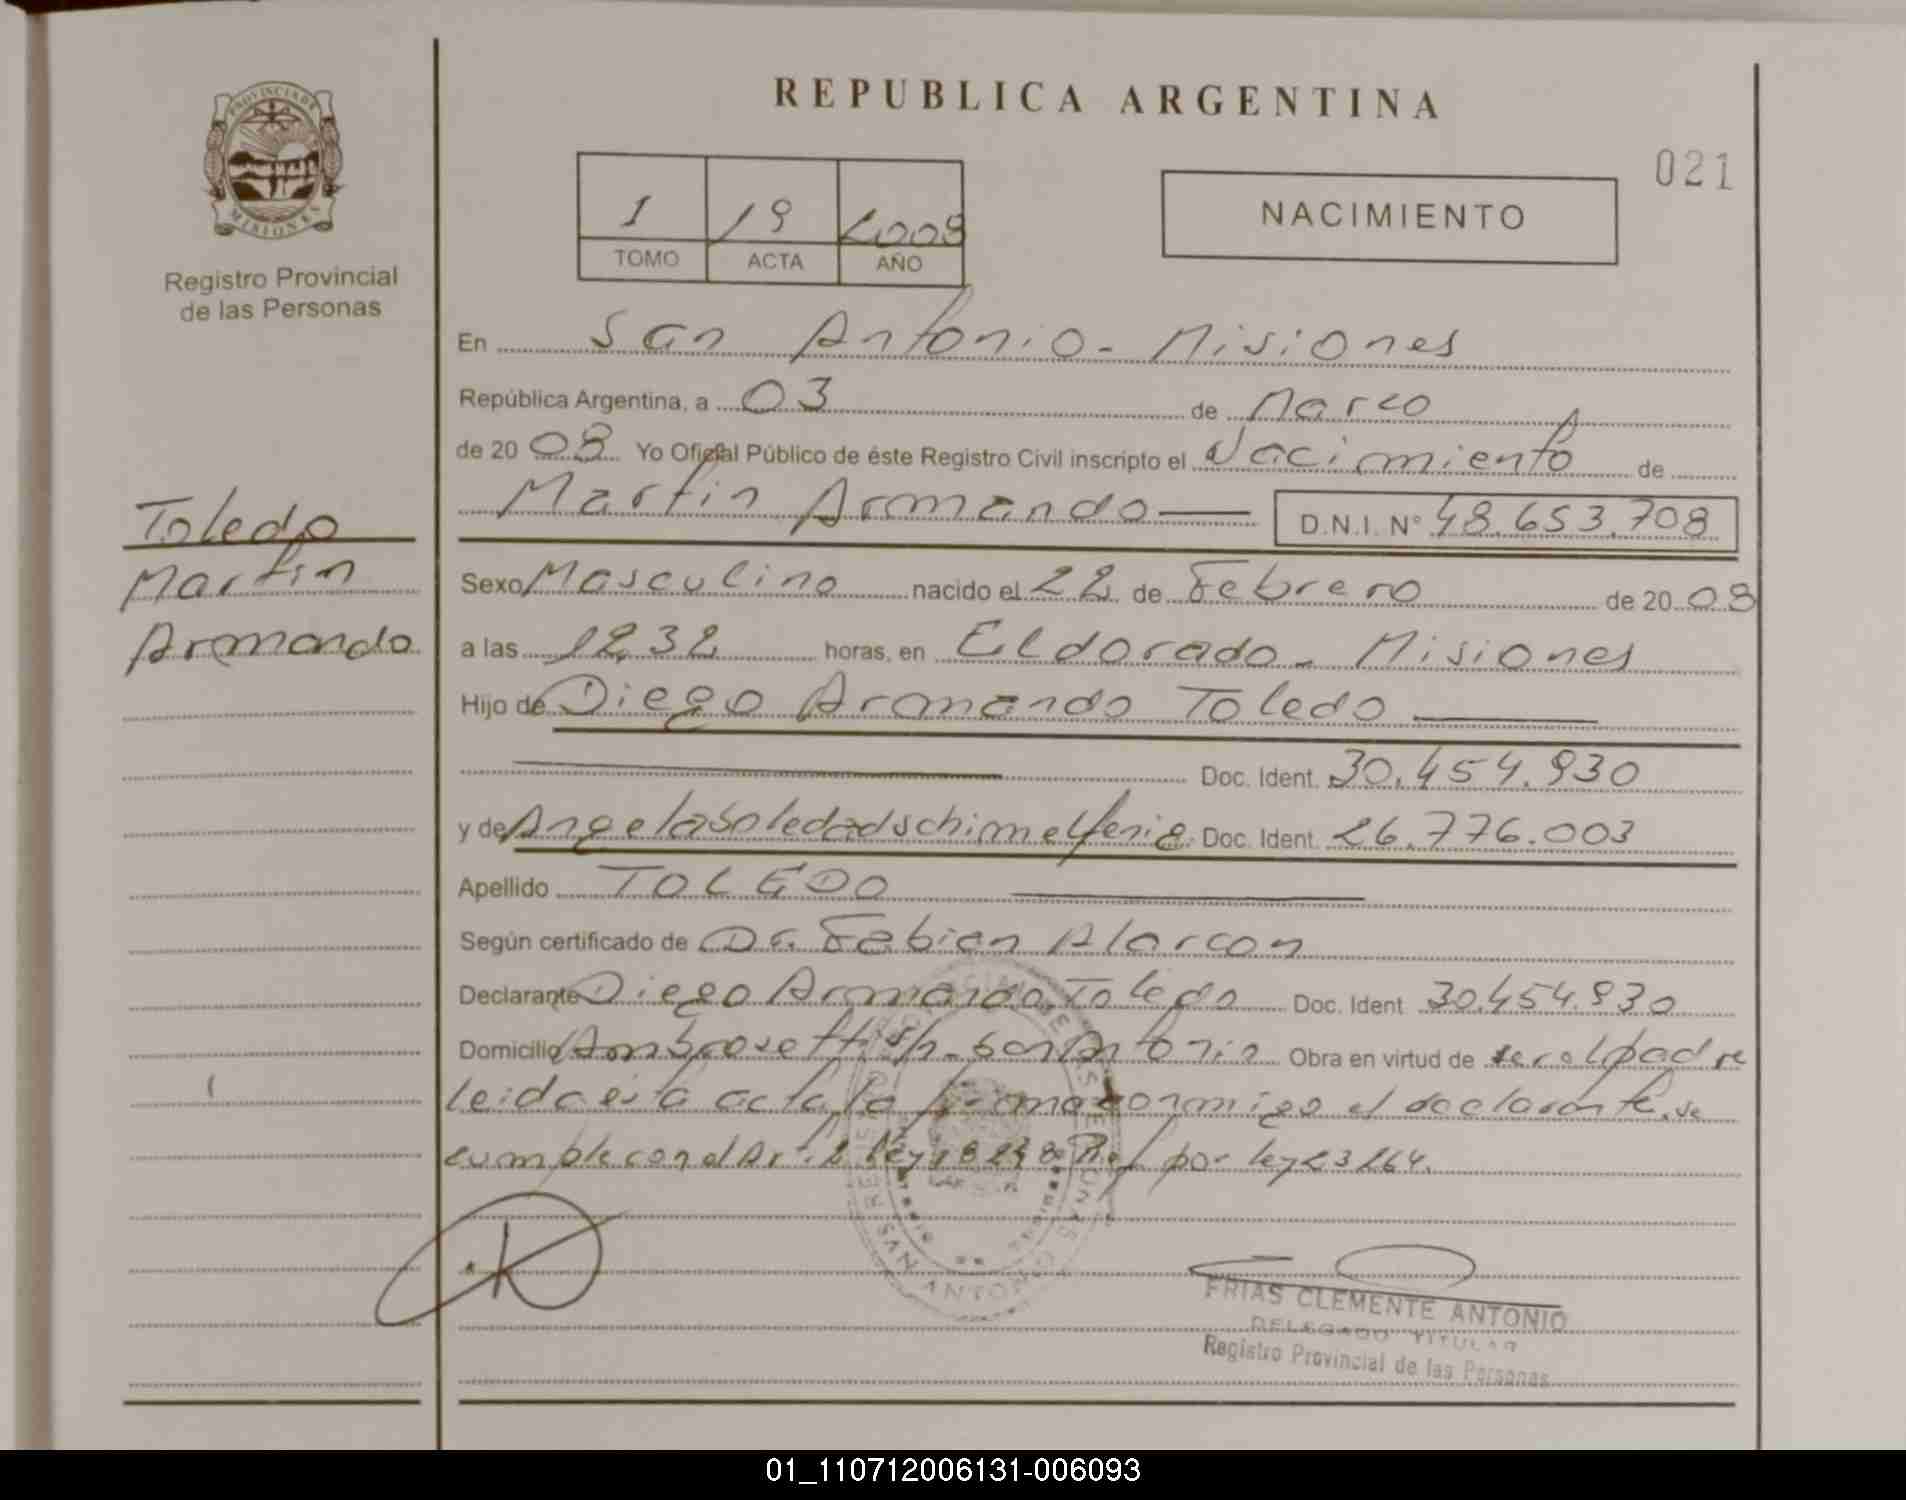 REPUBLICA ARGENTINA
021
PROVINCIA DE MISIONES
Registro Provincial
de las Personas
1 19 2008
TOMO ACTA AÑO
NACIMIENTO
En San Antonio - Misiones
República Argentina, a 03 de Marzo
de 20 08 Yo Oficial Público de éste Registro Civil inscripto el Nacimiento de
Martin Armando D.N.I. N° 48.653.708
Toledo
Martin
Armando
Sexo Masculino nacido el 22 de Febrero de 20 08
a las 12,32 horas, en Eldorado - Misiones
Hijo de Diego Armando Toledo
Doc. Ident. 30.454.930
y de Angela Soledad Schimelfenig Doc. Ident. 26.776.003
Apellido TOLEDO
Según certificado de Dr. Fabian Alarcon
Declarante Diego Armando Toledo Doc. Ident 30.454.930
Domicilio Ambrosetti s/n - San Antonio Obra en virtud de ser el padre
leida esta acta, la firma conmigo el declarante, se
cumple con el Art. 2 ley 18248 por ley 23264.
SAN ANTONIO
FRIAS CLEMENTE ANTONIO
DELEGADO TITULAR
Registro Provincial de las Personas
01_110712006131-006093